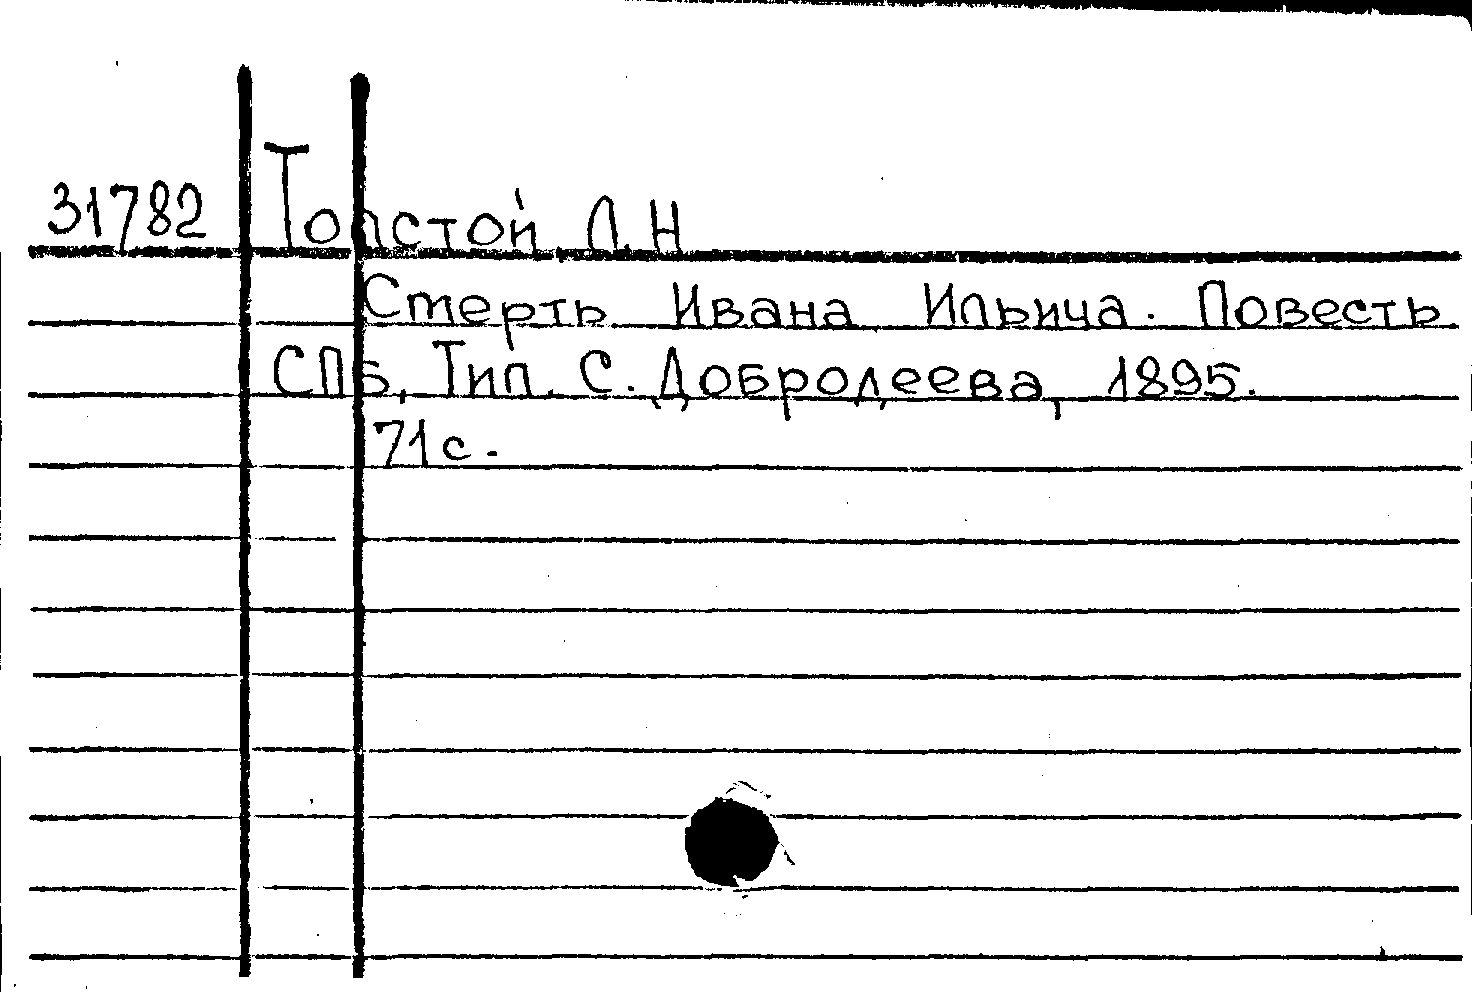 31782 Толстой Л.Н
Смерть Ивана Ильича. Повесть
СПБ, Тип. С. Добродеева, 1895.
71с.